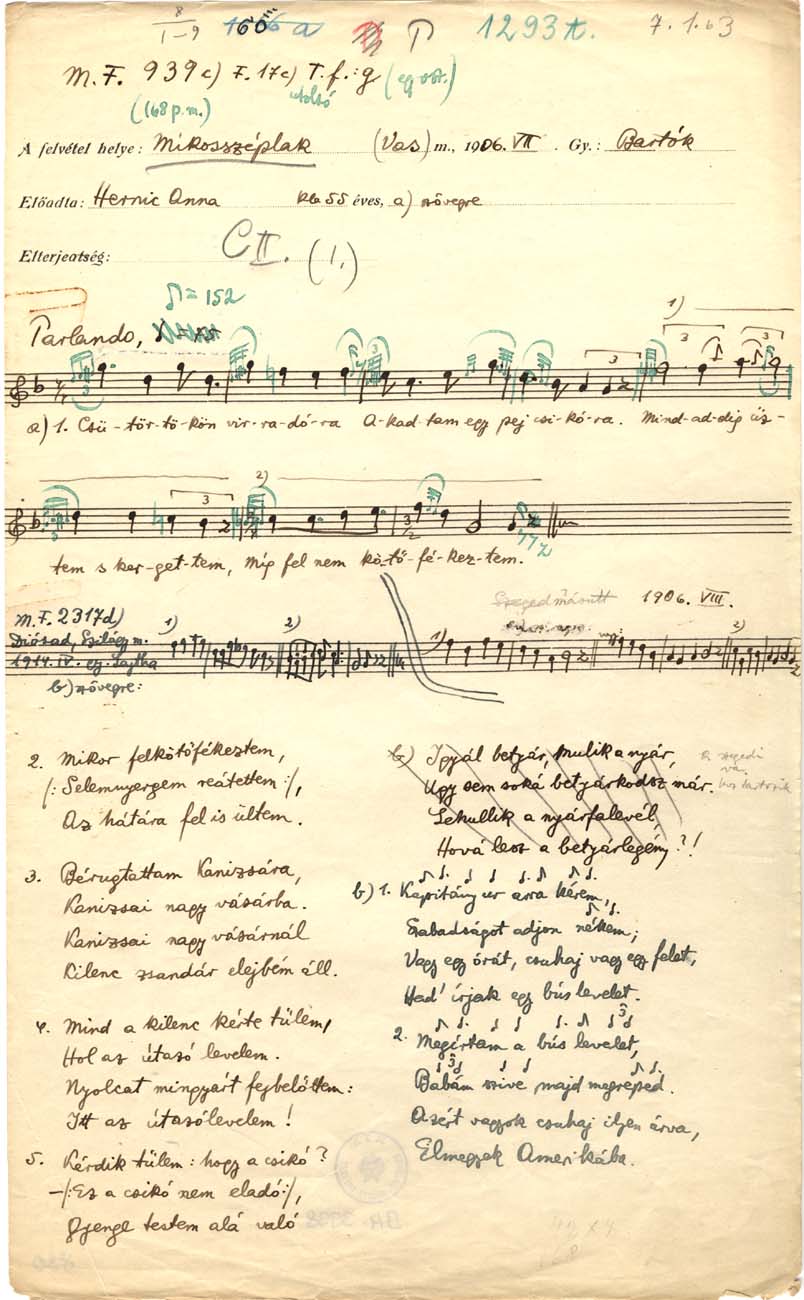 8
1-9
1293
7. 1. 63
M. F. 939 c) F. 17 c) T. f.: g
utolsó
(168 p.m.)
A felvétel helye: Mikosszéplak (Vas) m., 1906. VII. Gy.: Bartók
Előadta: Hernic Anna kb 55 éves, a) szövegre
Elterjedtség: C II. (1.)
♪ = 152
Parlando,
1)
a) 1. Csü-tör-tö-kön vir-ra-dó-ra A-kad-tam egy pej csi-kó-ra. Mind-ad-dig űz-
2)
tem s ker-get-tem, Míg fel nem kö-tő-fé-kez-tem.
1906. VIII.
M.F. 2317d)
Diósad, Szilágy m.
1914. IV. gy. Lajtha
b) szövegre:
1) 2)
1) 2)
2. Mikor felkötőfékeztem,
/: Selemnyergem reátettem :/,
Az hátára fel is ültem.
3. Bérugtattam Kanizsára,
Kanizsai nagy vásárba.
Kanizsai nagy vásárnál
Kilenc zsandár elejbém áll.
4. Mind a kilenc kérte tülem,
Hol az útazó levelem.
Nyolcat mingyárt fejbelőttem:
Itt az útazólevelem!
5. Kérdik tülem: hogy a csikó?
-/: Ez a csikó nem eladó :/,
Gyenge testem alá való
b) Igyál betyár, mulik a nyár,
Ugy sem soká betyárkodsz már.
Lehullik a nyárfalevél,
Hová lesz a betyárlegény?!
b) 1. Kapitány ur arra kérem,
Szabadságot adjon nékem;
Vagy egy órát, csuhaj vagy egy felet,
Had' írjak egy bús levelet.
2. Megírtam a bús levelet,
Babám szive majd megreped.
Azért vagyok csuhaj ilyen árva,
Elmegyek Amerikába.